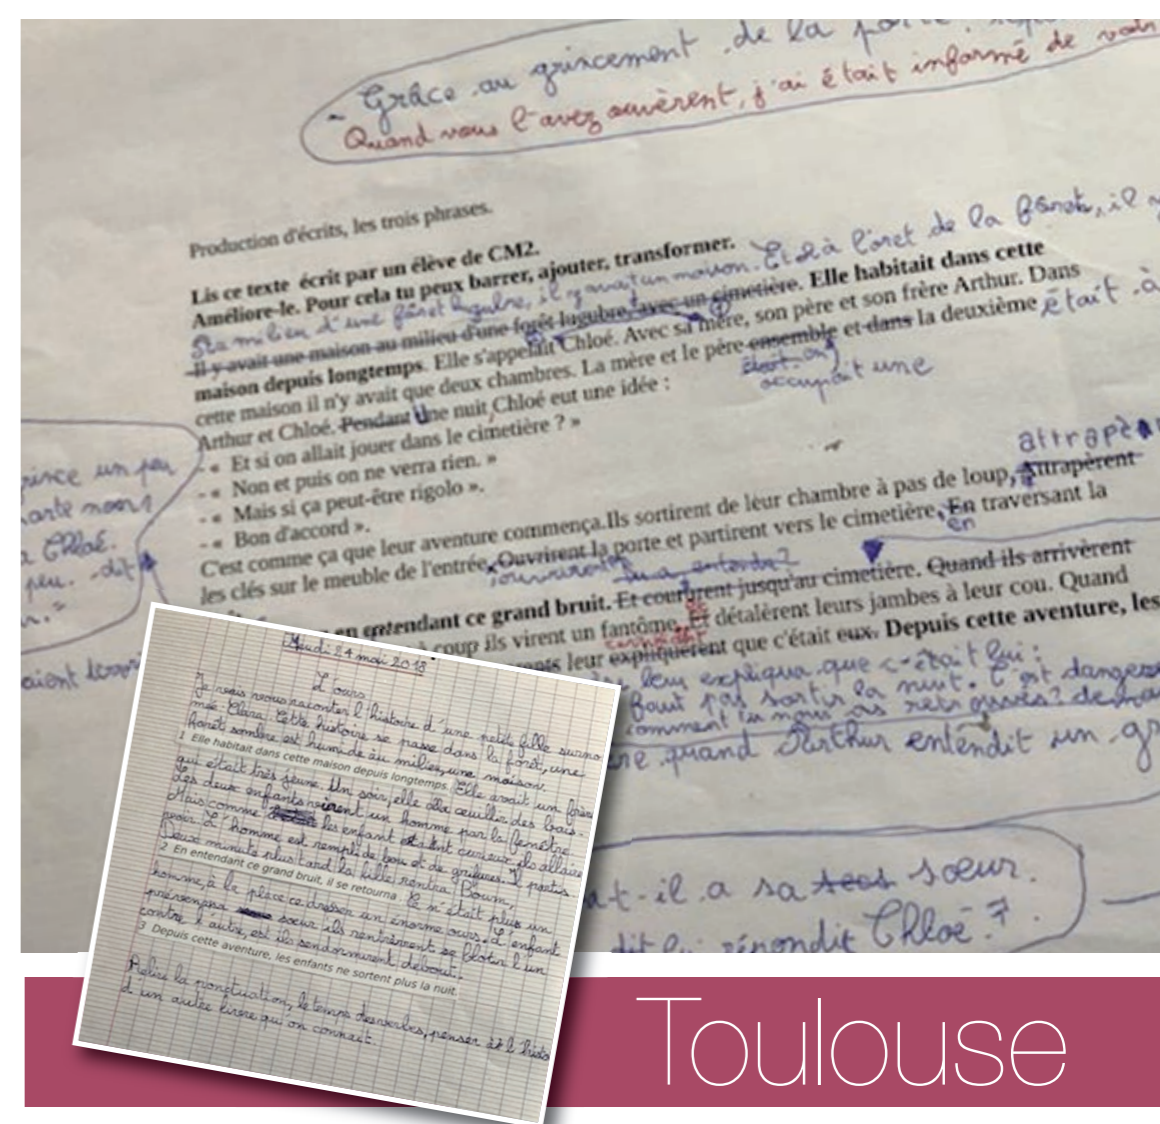 - Grâce au grincement de la
Quand vous l'avez ouvèrent, j'ai était informé de voir
Production d'écrits, les trois phrases.
Lis ce texte écrit par un élève de CM2.
Améliore-le. Pour cela tu peux barrer, ajouter, transformer.
Et à l'oret de la fôret, il
Au milieu d'une fôret lugubre, il y avait un maison.
Il y avait une maison au milieu d'une forêt lugubre, avec un cimetière. Elle habitait dans cette
maison depuis longtemps. Elle s'appelait Chloé. Avec sa mère, son père et son frère Arthur. Dans
cette maison il n'y avait que deux chambres. La mère et le père ensemble et dans la deuxième était à
occupait une
Arthur et Chloé. Pendant Une nuit, Chloé eut une idée :
- « Et si on allait jouer dans le cimetière ? »
- « Non et puis on ne verra rien. »
- « Mais si ça peut-être rigolo ».
- « Bon d'accord ».
attrapèr
C'est comme ça que leur aventure commença. Ils sortirent de leur chambre à pas de loup, Attrapèrent
les clés sur le meuble de l'entrée, Ouvrirent la porte et partirent vers le cimetière, En traversant la
en
en entendant ce grand bruit. Et coururent jusqu'au cimetière. Quand ils arrivèrent
coup ils virent un fantôme. Et détalèrent leurs jambes à leur cou. Quand
leur expliquèrent que c'était eux. Depuis cette aventure, les
leur expliqua que c'était lui :
faut pas sortir la nuit. C'est dangere
comment tu nous as retrouvés? dema
quand Arthur entendit un gr
at-il a sa soeur.
dit lui répondit Chloé.
grince un peu
porte nous
Chloé.
peu. dit
Jeudi 24 mai 2018
L'ours
Je vais vous raconter l'histoire d'une petite fille surno
mée Clara. Cette histoire se passe dans la forêt, une
forêt sombre est humide au milieu, une maison.
1 Elle habitait dans cette maison depuis longtemps. Elle avait un frère
qui était très jeune. Un soir, elle alla ceuillir des bais.
Les deux enfants virent un homme par la fenêtre
Mais comme les enfant était curieux, ils allaire
voir. L'homme est remplide boue et de grifures. Il partis.
Deux minute plus tard la fille rentra. Boum,
2 En entendant ce grand bruit, il se retourna. Ce n'était plus un
homme, à la place ce dresser un énorme ours. L'enfant
prévena sœur ils rentrèrent se blotir l'un
contre l'autre, est ils sendormirent debout.
3 Depuis cette aventure, les enfants ne sortent plus la nuit.
Relire la ponctuation, le temps des verbes, penser à l'histo
d'un autre livre qui on connait.
Toulouse